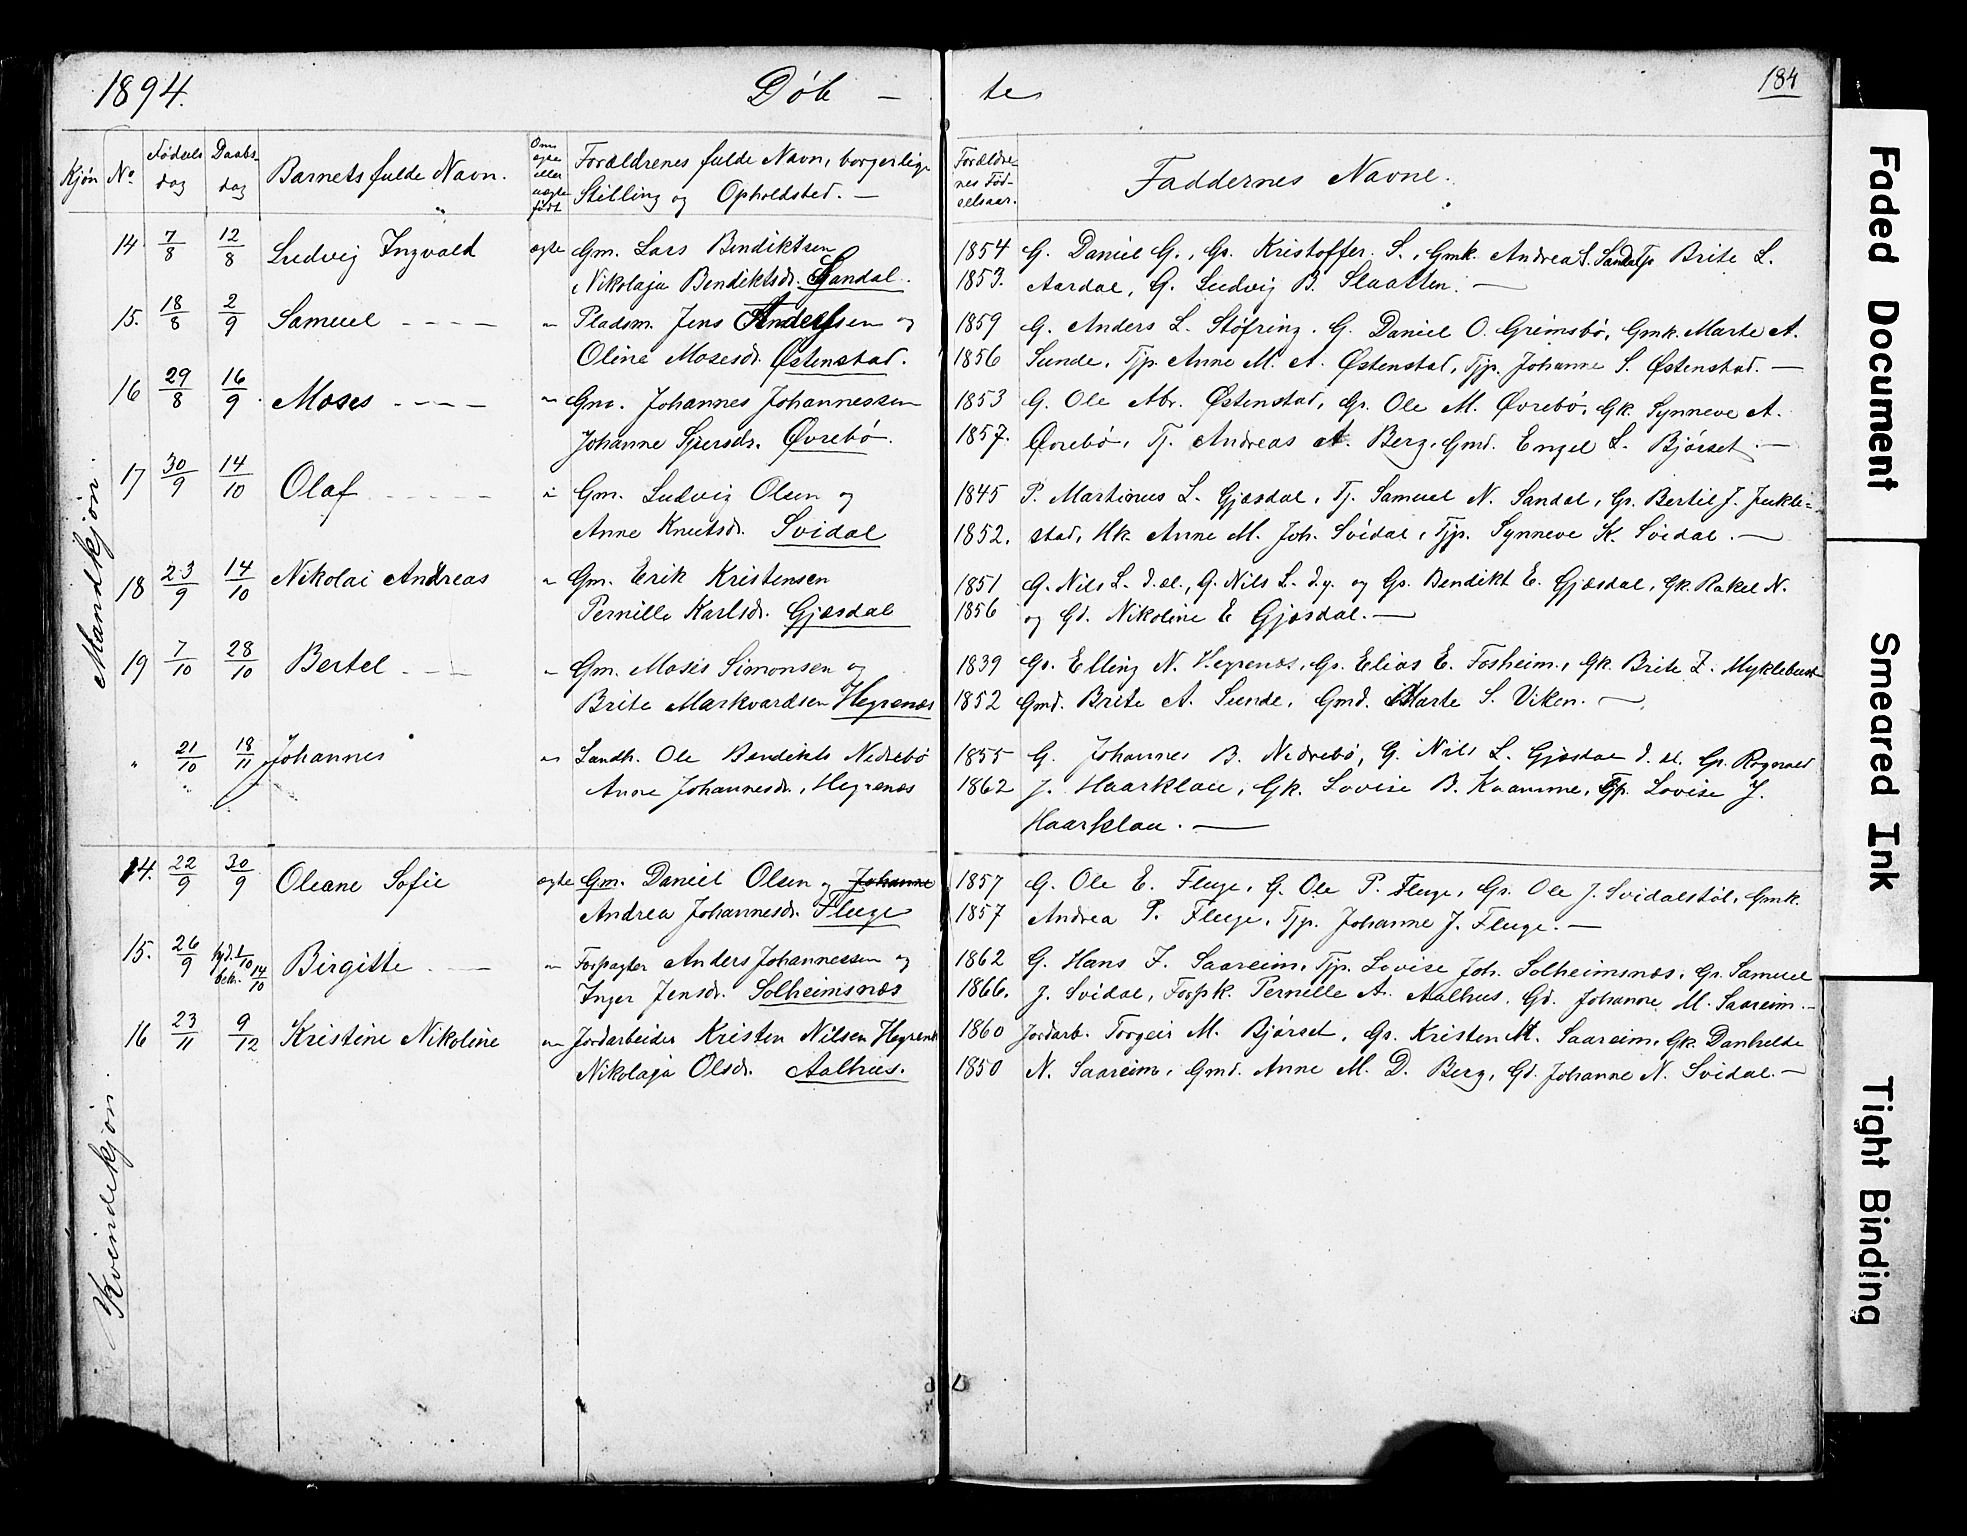 1894. Døb - te 184
Kjøn No Fødsels dag Daabs- dag Barnets fulde Navn. Om ægte eller uægte født Forældrenes fulde Navn, borgerlige Stilling og Opholdsted. — Forældre- nes Fød- selsaar. Faddernes Navne.
Mandkjøn.
14 7/8 12/8 Ludvig Ingvald ægte Gm. Lars Bendiktsen 1854 G. Daniel G., Gs. Kristoffer S., Gmk. Andrea S. Sandal, Tjp Brite L.
Nikolaja Bendiktsdr. Sandal. 1853. Aardal, G. Ludvig B. Slaatten. —
15. 18/8 2/9 Samuel - - - - " Pladsm. Jens Andersen og 1859 G. Anders L. Støfring. G. Daniel O. Grimsbø, Gmk. Marte A.
Oline Mosesdr. Østenstad. 1856 Sunde, Tjp. Anne M. A. Østenstad, Tjp. Johanne S. Østenstad. —
16 29/8 16/9 Moses - - - - " Gm. Johannes Johannessen 1853 G. Ole Abr. Østenstad, Gs. Ole M. Øvrebø, Gk. Synneve A.
Johanne Sjursdr. Øvrebø. 1857. Øvrebø, Tj. Andreas A. Berg, Gmd. Engel L. Bjørset. —
17 30/9 14/10 Olaf - - - - " Gm. Ludvig Olsen og 1845 P. Martinus L. Gjesdal, Tj. Samuel N. Sandal, Gs. Bertil J. Jukle-
Anne Knutsdr. Svidal 1852. stad, Hk. Anne M. Joh. Svidal, Tjp. Synneve K. Svidal. —
18 23/9 14/10 Nikolai Andreas " Gm. Erik Kristensen 1851 G. Nils L. d. el., G. Nils L. d. y. og Gs. Bendikt E. Gjesdal, Gk. Rakel N.
Pernille Karlsdr. Gjesdal 1856 og Gd. Nikoline E Gjesdal. —
19 7/10 28/10 Bertel - - - " Gm. Moses Simonsen og 1839 Gs. Elling N. Hegrenæs, Gs. Elias E. Tosheim, Gk. Brite Z. Myklebust
Brite Markvardsen Hegrenæs 1852 Gmd. Brite A. Sunde, Gmd. Marte S. Viken. —
" 21/10 18/11 Johannes " Landh. Ole Bendikts. Nedrebø 1855 G. Johannes B. Nedrebø, G. Nils L. Gjesdal d. el. Gs. Rognald
Anne Johannesdr., Hegrenæs 1862 J. Haarklau, Gk. Lovise B. Kvamme, Tjp. Lovise J.
Haarklau. —
Kvindekjøn.
14. 22/9 30/9 Oleane Sofie ægte Gm. Daniel Olsen og Johanne 1857 G. Ole E. Fluge, G. Ole P. Fluge, Gs. Ole J. Svidalstøl, Gmk.
Andrea Johannesdr. Fluge 1857 Andrea P. Fluge, Tjp. Johanne J. Fluge. —
15. 26/9 hjd. 1/10 bekr. 14/10 Birgitte - - " Forpagter Anders Johannessen og 1862 G. Hans F. Saareim, Tjp. Lovise Joh. Solheimsnæs, Gs. Samuel
Inger Jensdr. Solheimsnæs 1866. J. Svidal, Forpk. Pernille A. Aalhus, Gd. Johanne M. Saareim. —
16 23/11 9/12 Kristine Nikoline " Jordarbeider Kristen Nilsen Hegrenæs 1860 Jordarb. Torgeir M. Bjørset, Gs. Kristen M. Saareim, Gk. Danhilde
Nikolaja Olsdr. Aalhus. 1850 N. Saareim, Gmd. Anne M. D. Berg, Gd. Johanne N. Svidal. —
Faded Document
Smeared Ink
Tight Binding